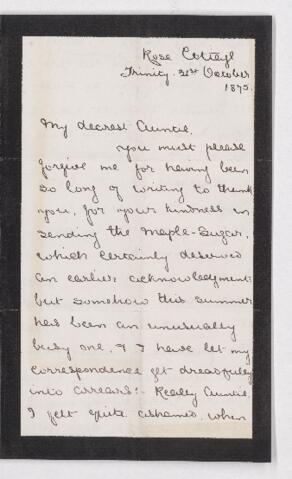 Rose Cottage
Trinity. 31st October
1875.
My dearest Auntie,
You must please
forgive me for having been
so long of writing to thank
you, for your kindness in
sending the Maple-Sugar,
which certainly deserved
an earlier acknowledgment
but somehow this summer
has been an unusually
busy one, & I have let my
correspondence get dreadfully
into arrears:- Really Auntie,
I felt quite ashamed, when